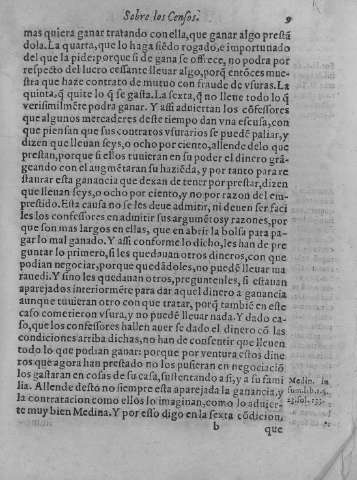 Sobre los Censos. 9
mas quiera ganar tratando con ella, que ganar algo prestã
dola. La quarta, que lo haga siẽdo rogado, e importunado
del que la pide: porque si de gana se offrece, no podra por
respecto del lucro cessante lleuar algo, porq̃ entõces mue-
stra que haze contrato de mutuo con fraude de vsuras. La
quinta, q̃ quite lo q̃ se gasta. La sexta, q̃ no lleue todo lo q̃
verisimilmẽte podrá ganar. Y assi aduiertan los cõfessores
que algunos mercaderes deste tiempo dan vna escusa, con
que piensan que sus contratos vsurarios se puedẽ paliar, y
dizen que lleuan seys, o ocho por ciento, allende delo que
prestan, porque si ellos tuuieran en su poder el dinero grã-
geando con el augmẽtaran su haziẽda, y por tanto para re
staurar esta ganancia que dexan de tener por prestar, dizen
que lleuan seys, o ocho por ciento, y no por razon del em-
prestido. Esta causa no se les deue admitir, ni deuen ser faci
les los confessores en admitir sus argumẽtos y razones, por
que son mas largos en ellas, que en abrir la bolsa para pa-
gar lo mal ganado. Y assi conforme lo dicho, les han de pre
guntar lo primero, si les quedauan otros dineros, con que
podian negociar, porque quedãdoles, no puedẽ lleuar ma
rauedi. Y si no les quedauan otros, preguntenles, si estauan
aparejados interiormẽte para dar aquel dinero a ganancia
aunque tuuieran otro con que tratar, porq̃ tambiẽ en este
caso cometieron vsura, y no puedẽ lleuar nada. Y dado ca-
so, que los confessores hallen auer se dado el dinero cõ las
condiciones arriba dichas, no han de consentir que lleuen
todo lo que podian ganar: porque por ventura estos dine
ros que agora han prestado no los pusieran en negociaciõ
los gastaran en cosas de su casa, sustentando a si, y a su fami
lia. Allende desto no siempre esta aparejada la ganancia, y
la contratacion como ellos lo imaginan, como lo aduier-
te muy bien Medina. Y por esso digo en la sexta cõdicion,
Medin. in
sum. lib. 1. §.
23. fol. 133.
b que